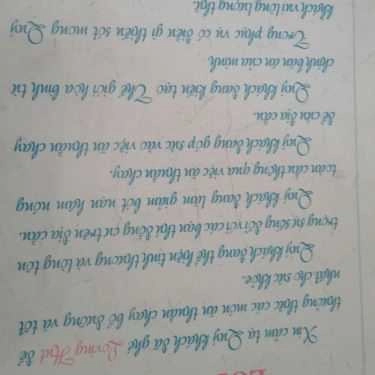 Xin cảm tạ Quý khách đã ghé Loving Hut để
thưởng thức các món ăn thuần chay bổ dưỡng và tốt
nhất cho sức khỏe.
Quý khách đang thể hiện tình thương và lòng tôn
trọng sự sống đối với các bạn thú đồng cư trên địa cầu.
Quý khách đang làm giảm bớt hâm nóng
toàn cầu thông qua việc ăn thuần chay.
Quý khách đang góp sức vào việc ăn thuần chay
để cứu địa cầu.
Quý khách đang kiến tạo Thế giới hòa bình từ
chính bàn ăn của mình.
Trong phục vụ có điều gì sót mong Quý
khách vui lòng lượng thứ.